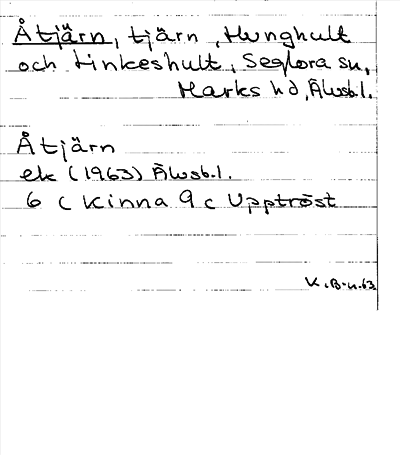 Åtjärn, tjärn, Hunghult
och Linkeshult, Seglora sn,
Marks hd, Älvsb.l.
Åtjärn
ek (1963) Älvsb.l.
6 c Kinna 9 c Upptröst
K.B-n.63